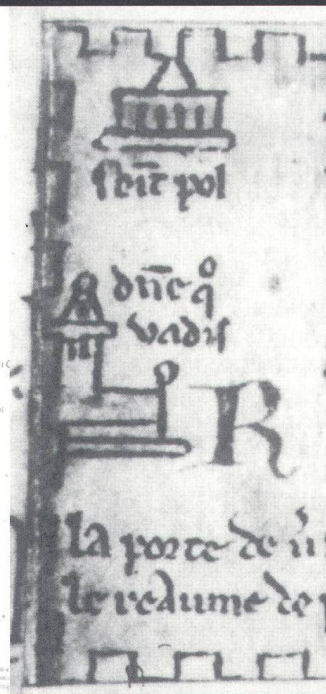 seīt pol
dn̄e qͦ
vadis
R
la porte de
le reaume de